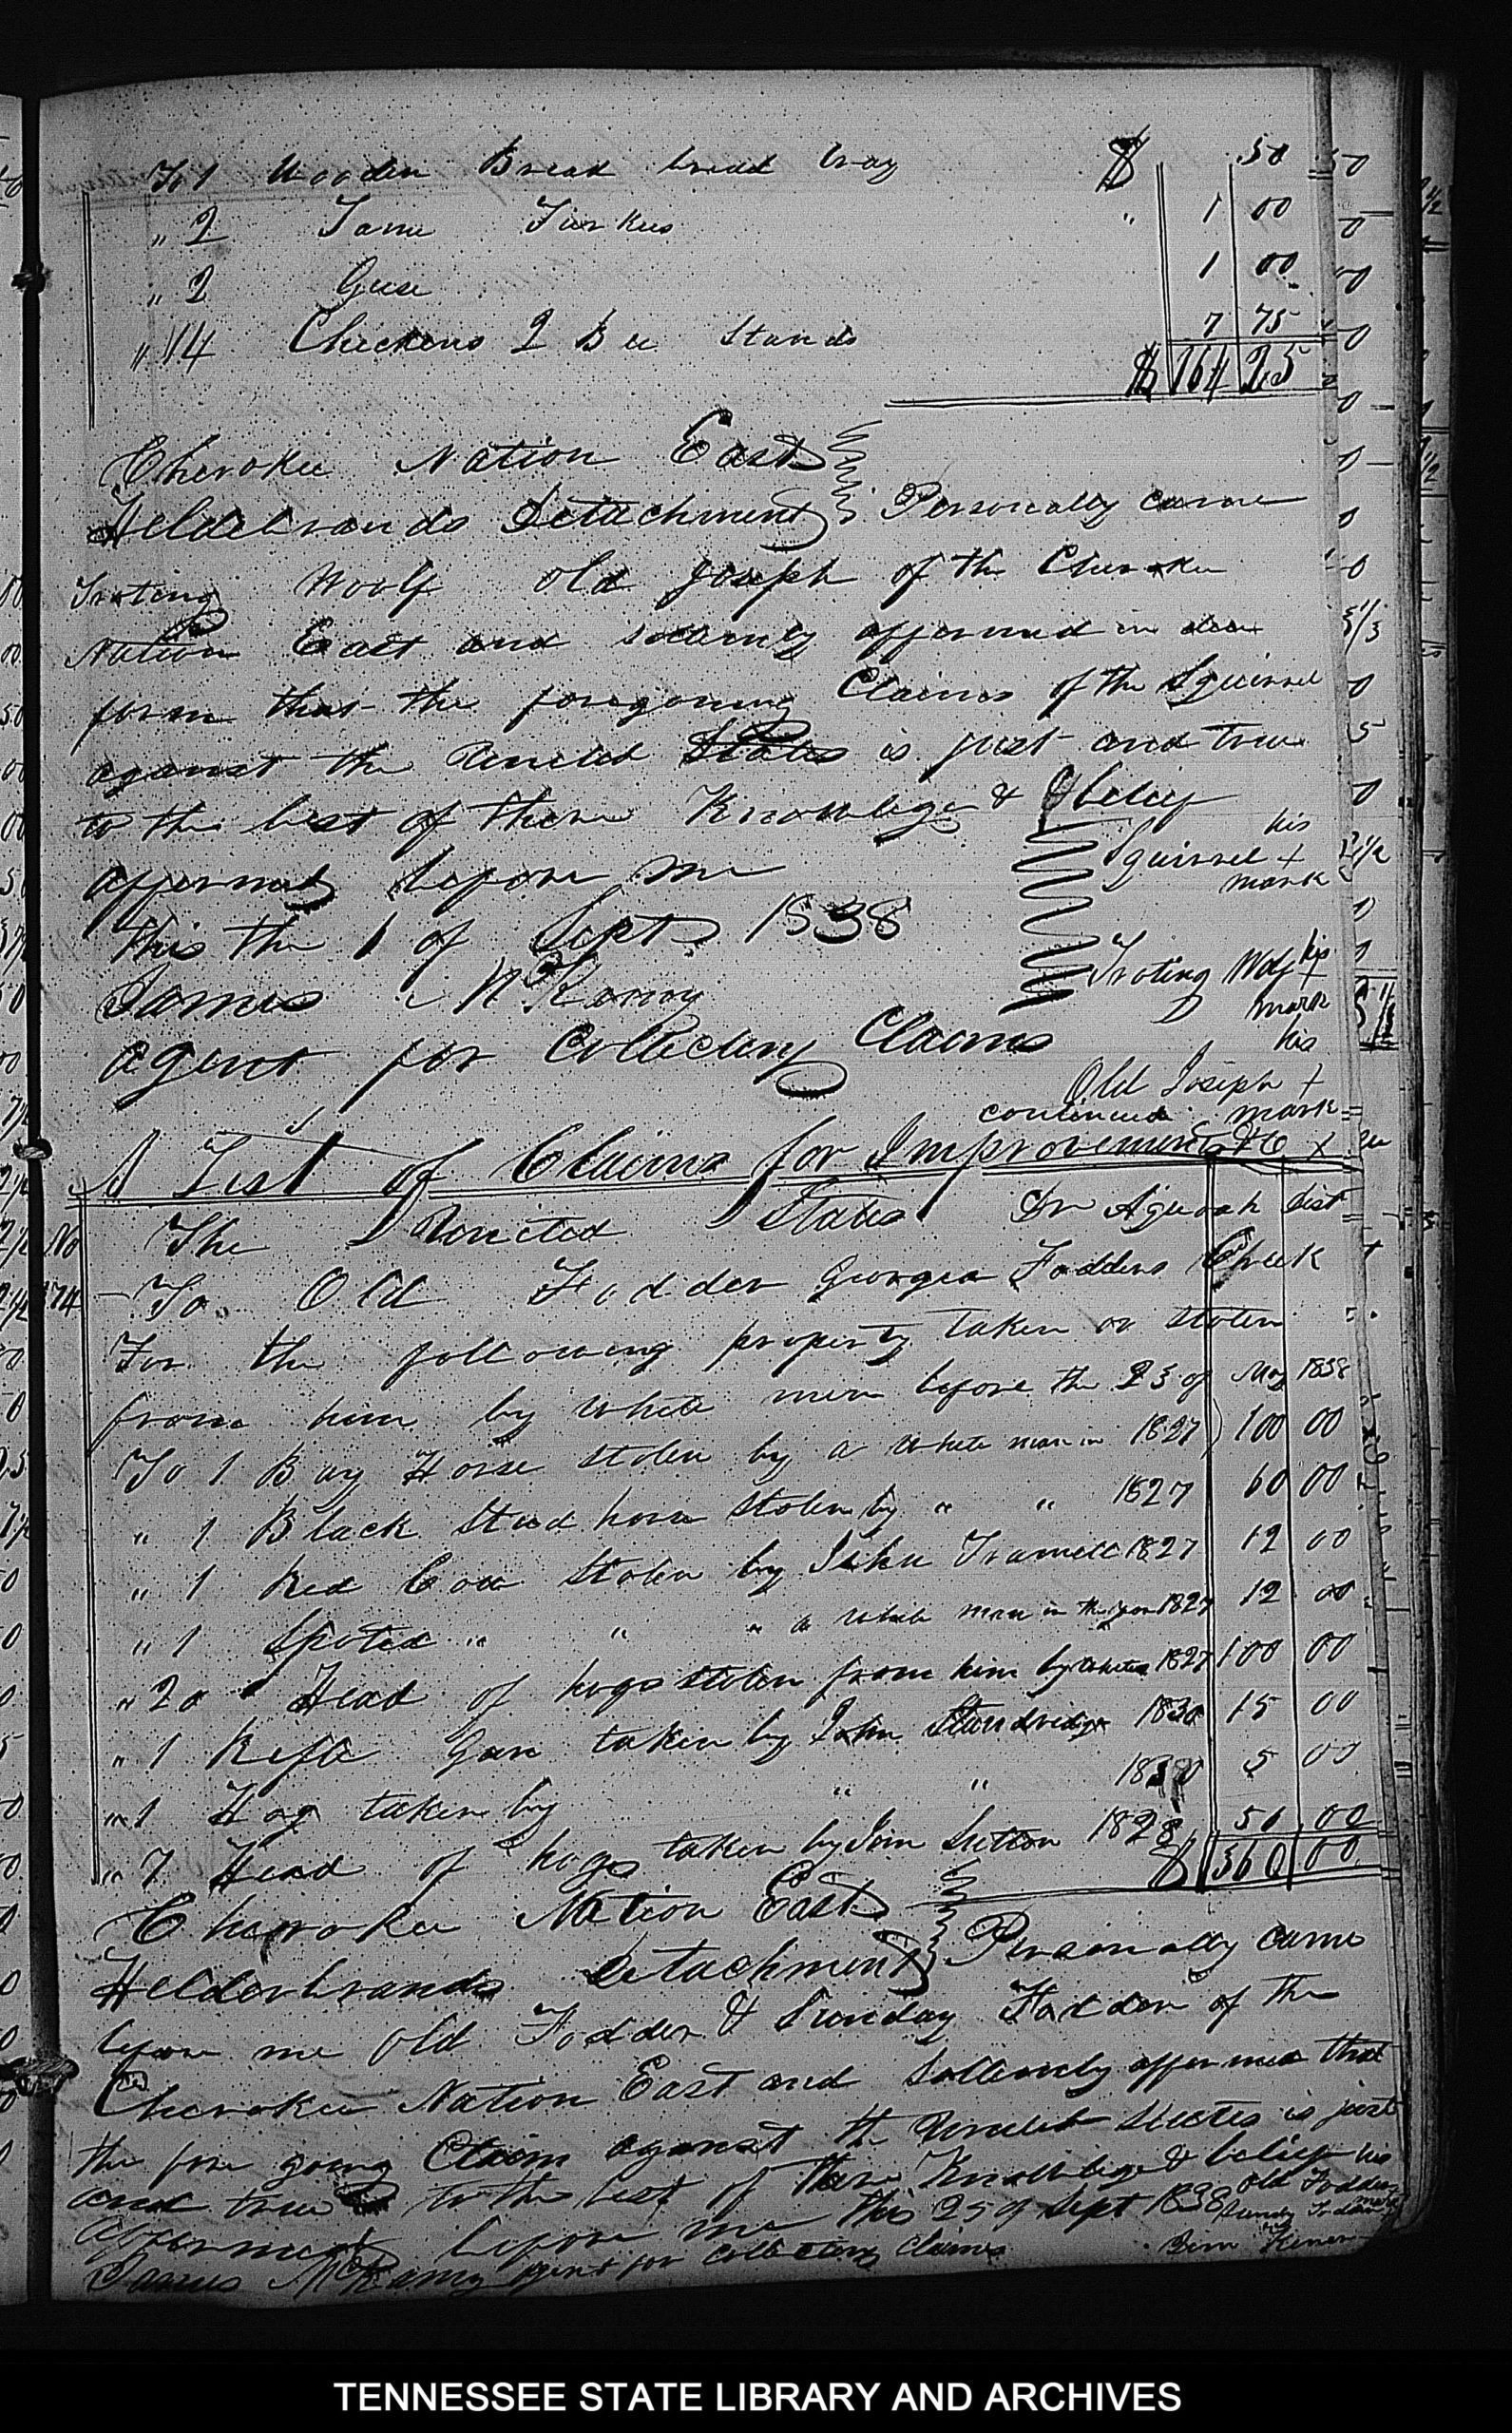 To 1 Wooden Bread bread tray $ .50
" 2 Tame Turkies " 1 00
" 2 Geese 1 00
" 14 Chickens 2 Bee Stands 7 75
$ 164 25
Cherokee Nation East
Heldebrands Detachment Personally came
Troting Woolf old Joseph of the Cherokee
Nation East and sollemly affermed in due
form that the foregoing Claims of the Squirrel
against the United States is just and true
to the best of there Knowledge & belief
affermed before me
this the 1 of Sept 1838
James McKamy
agent for Collecting Claims
his
Squirrel +
mark
Troting Wolf his +
mark
his
Old Joseph +
mark
continued
A List of Claims for Improvements &C
The United States Dr Aquoah Dist
No 174 To Old Fodder Georgea Fodders Creek
For the following property taken or stolen
from him by white men before the 23 of May 1838
To 1 Bay Horse stolen by a white man in 1827 100 00
" 1 Black Stud horse stolen by " " 1827 60 00
" 1 Red Cow stolen by John Tramell 1827 12 00
" 1 Spoted " " " a white man in the year 1827 12 00
" 20 Head of hogs stolen from him by whites 1827 100 00
" 1 Rifle Gun taken by John Standridge 1830 15 00
" 1 Hog taken by " " 1830 5 00
" 7 Head of hogs taken by Jim Sutton 1828 56 00
$ 360 00
Cherokee Nation East
Helderbrands Detachment Personally came
before me old Fodder & Sunday Fodder of the
Cherokee Nation East and Sollemly affermed that
the fore going Claim against the United States is just
and true to the best of there Knowledge & belief his
affermed before me this 25 of Sept 1838 Old Fodder
mark
Sunday Fodder
James McKamy agent for collecting claims
TENNESSEE STATE LIBRARY AND ARCHIVES